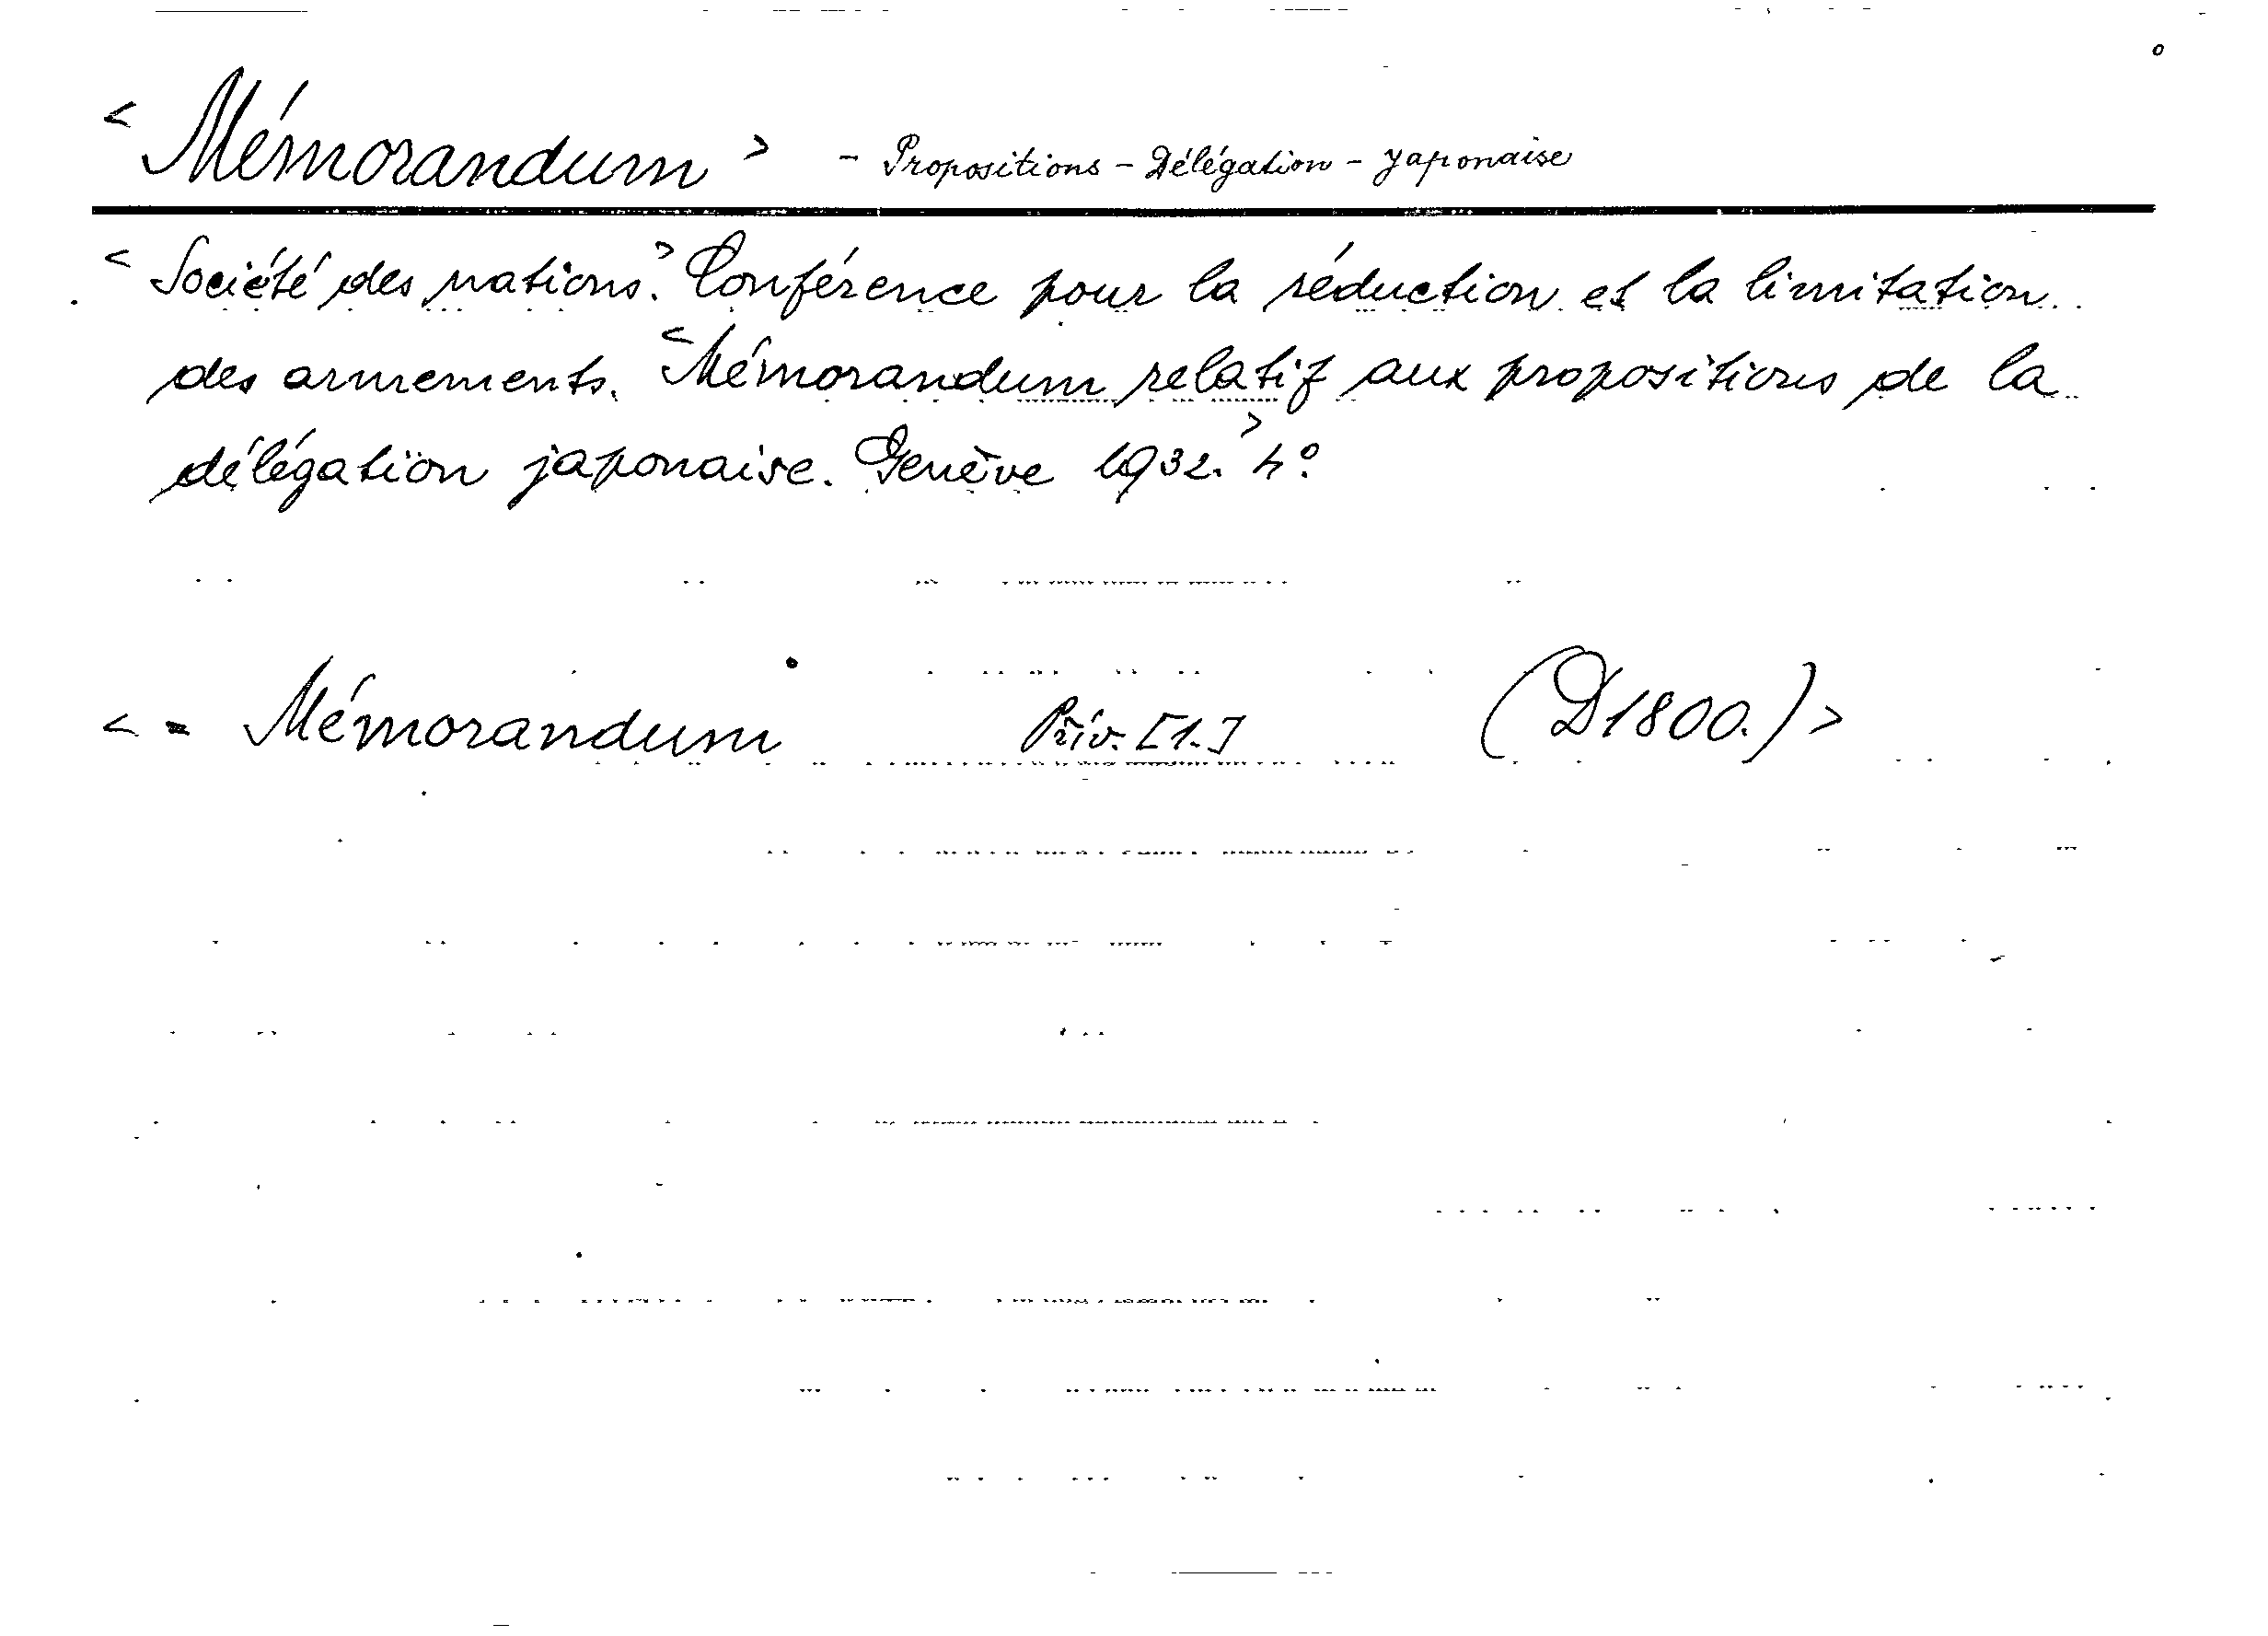 < Mémorandum > - Propositions - Délégation - japonaise
< Société des nations.> Conférence pour la réduction et la limitation
des armements. < Mémorandum relatif aux propositions de la
délégation japonaise. Genève 1932.> 4°.
< = Mémorandum Priv. [1.] (D1800.) >